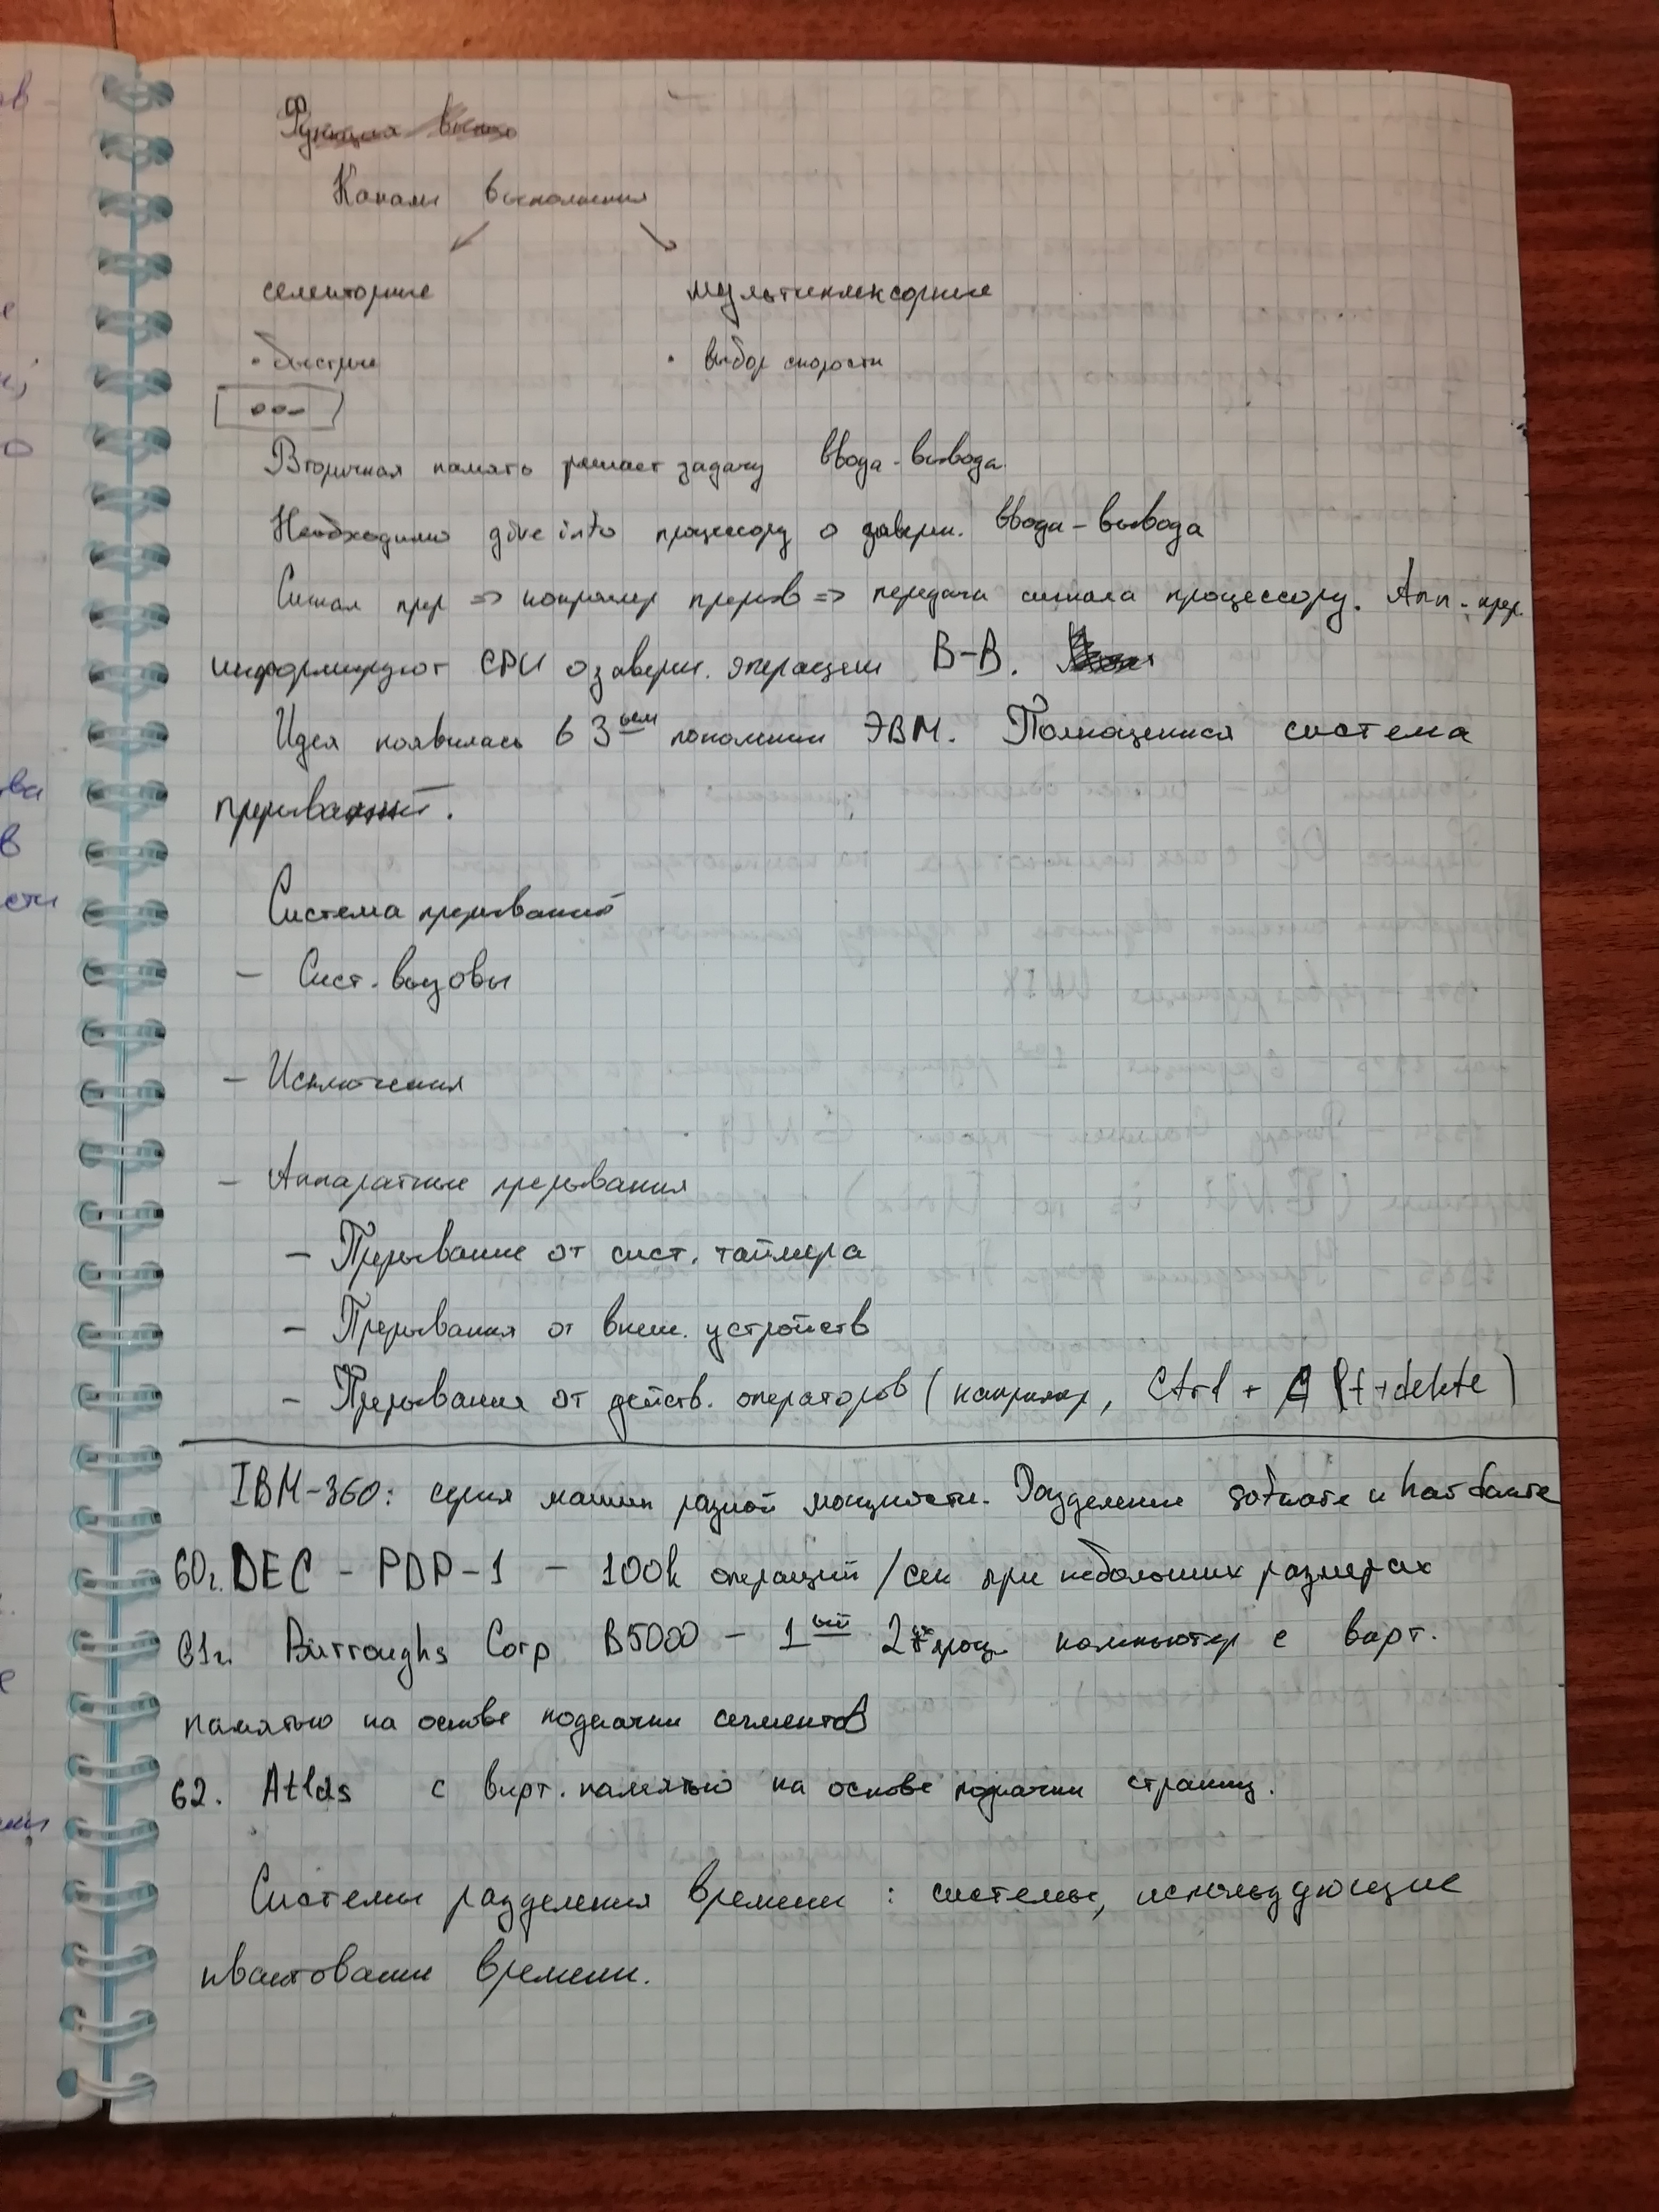 Каналы выполнения
селекторные мультиплексорные
• быстрые • выбор скорости
Вторичная память решает задачу ввода-вывода
Необходимо give info процессору о заверш. ввода-вывода
Сигнал прер => контролер прерыв => передача сигнала процессору. Апп. прер.
информируют CPU о заверш. операции В-В.
Идея появилась в 3ьем поколении ЭВМ. Полноценная система
прерываний.
Система прерываний
- Сист. вызовы
- Исключения
- Аппаратные прерывания
- Прерывание от сист. таймера
- Прерывания от внеш. устройств
- Прерывания от действ. операторов (например, Ctrl + +delete)
IBM-360: серия машин разной мощности. Разделение software и hardware
60г. DEC - PDP-1 - 100k операций/сек при небольших размерах
61г. Burroughs Corp B5000 - 1ый 2х проц. компьютер с вирт.
памятью на основе подкачки сегментов
62. Atlas с вирт. памятью на основе подкачки страниц.
Системы разделения времени: системы, использующие
квантование времени.